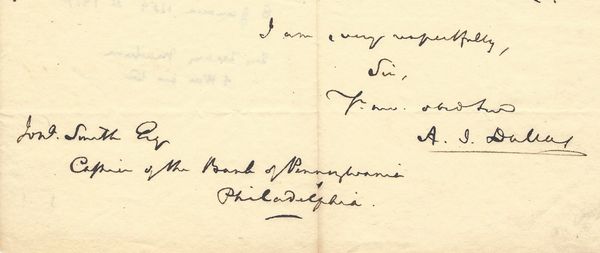 I am, very respectfully,
Sir,
Yr. mo. obed serv
A. J. Dallas
Jond. Smith Esq
Cashier of the Bank of Pennsylvania
Philadelphia.